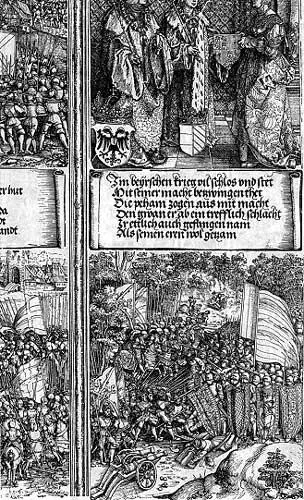 er hut
da
dt
andt
Im beyrschen krieg vil schlos vnd stet
Mit seiner macht bezwingen thet
Die peham zogen aus mit macht
Den gwan er ab ein trefflich schlacht
Er etlich auch gefangen nam
Als seinen eren wol gezam